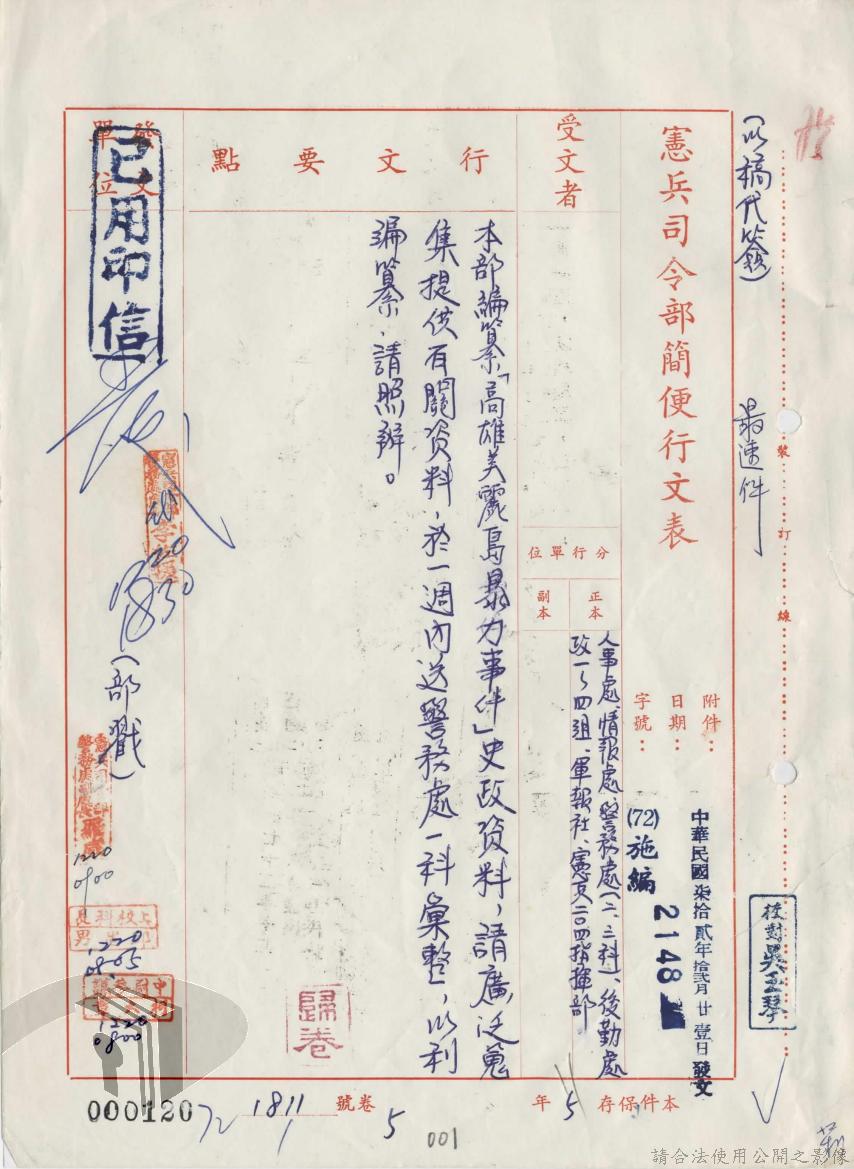 （以稿代簽）
最速件
裝訂線
憲兵司令部簡便行文表
受文者
分行單位
正本
副本
人事處、情報處、警務處（二、三科）、後勤處
政一～四組、軍報社、憲兵二〇四指揮部
附件：
日期：
中華民國柒拾貳年拾貳月廿壹日發文
字號：
(72)施編
2148
校對吳玉琴
行文要點
本部編篹「高雄美麗島暴力事件」史政資料，請廣泛蒐
集提供有關資料，於一週內送警務處一科彙整，以利
編篹，請照辦。
歸卷
發文單位
已用印信
代
1220
（部戳）
1220
0900
上校科長
1220
0805
1220
0800
本件保存5年
卷號
5
72
1811
000120
001
請合法使用公開之影像